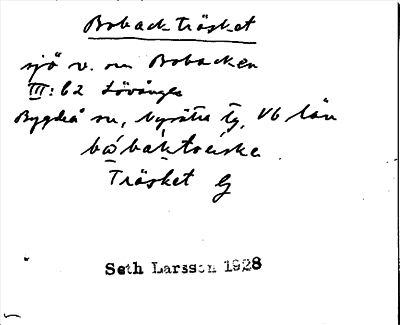 Boback träsket
sjö v. om Bobacken
III:62 Lövånger
Bygdeå sn, Nysätra tg, Vb län
Träsket G
Seth Larsson 1928